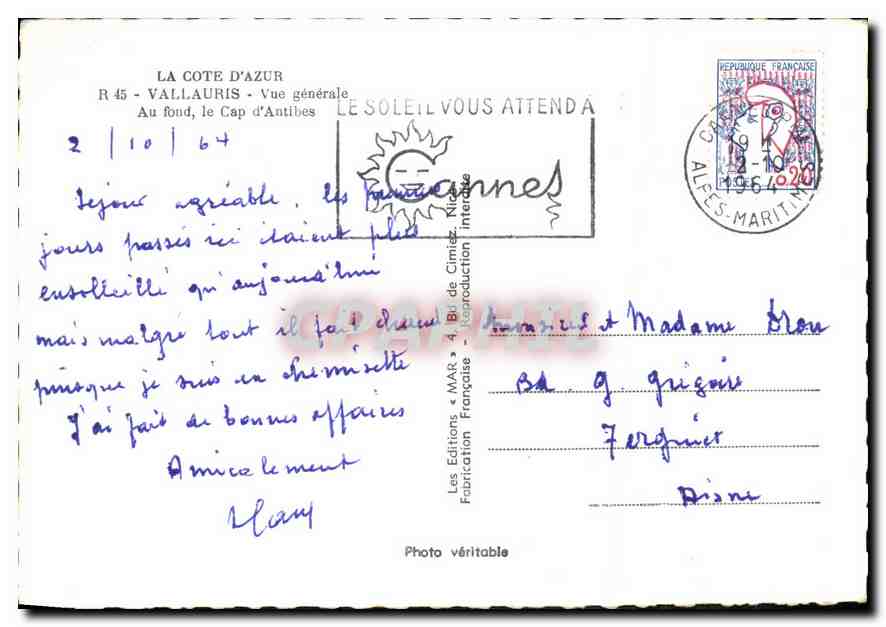 LA COTE D'AZUR
R 45 - VALLAURIS - Vue générale
Au fond, le Cap d'Antibes
LE SOLEIL VOUS ATTEND A
Cannes
REPUBLIQUE FRANÇAISE
0,20
CANNES
19 H
2-10
1964
ALPES-MARITIMES
2 / 10 / 64
Sejour agréable, les
jours passés ici étaient plus
ensolleillé qu'aujourd'hui
mais malgré tout il fait chaud
puisque je suis en chemisette
J'ai fait de bonnes affaires
Amicalement
Les Editions « MAR » 4, Bd de Cimiez, Nice
Fabrication Française - Reproduction interdite
CPAPHIL
et Madame Dron
Bd G. Grégoire
Tergnier
Aisne
Photo véritable